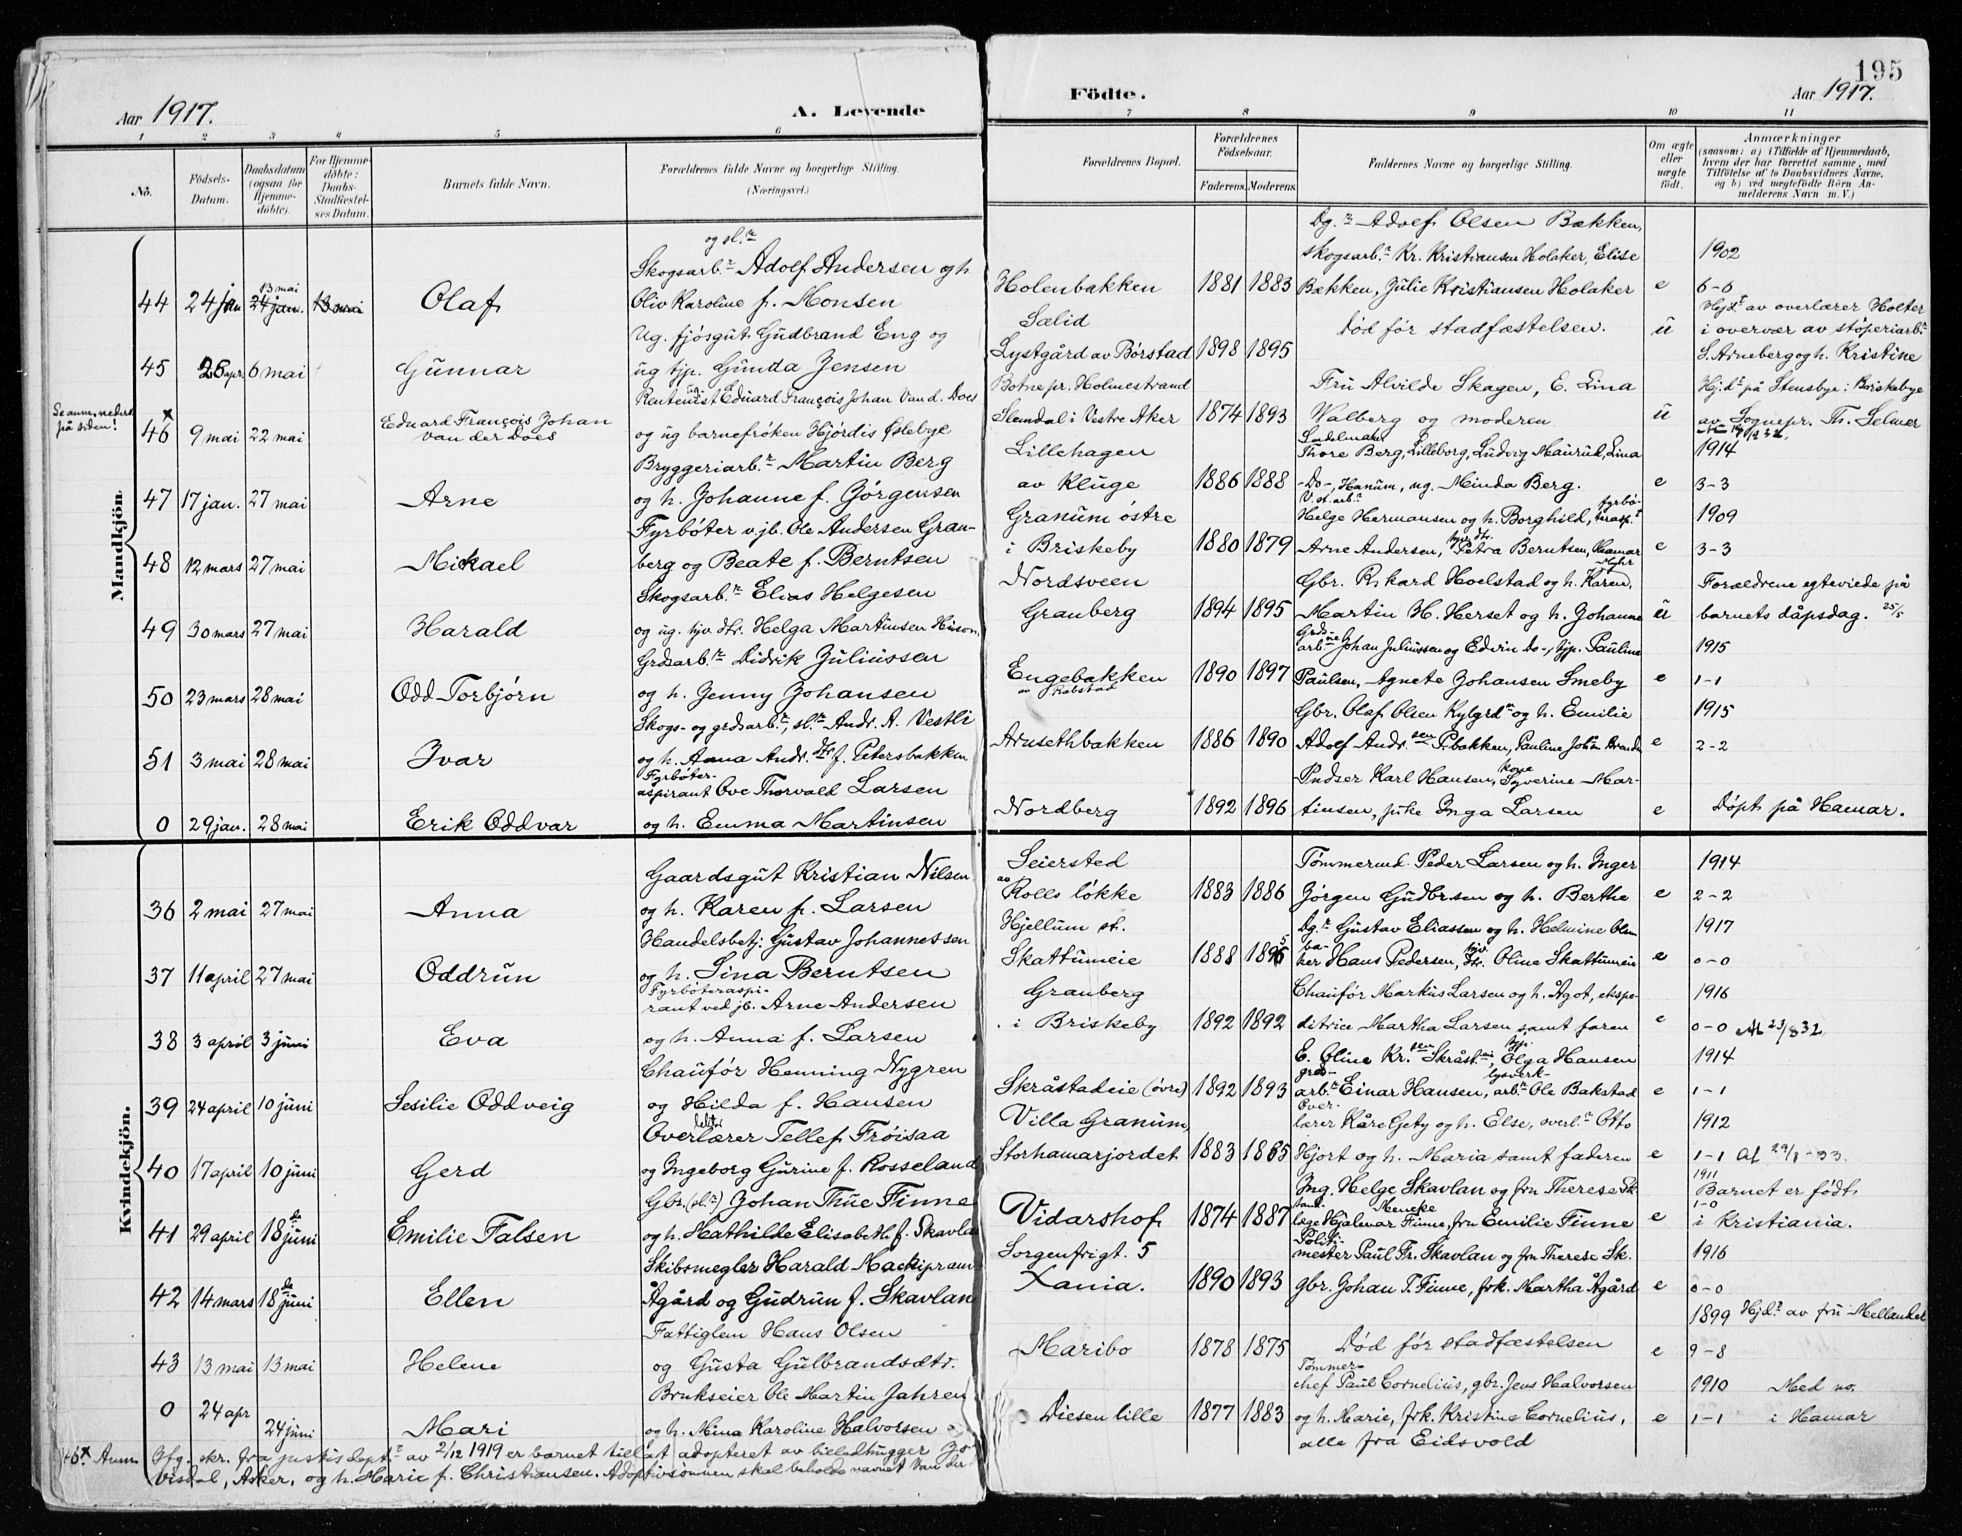 195
Aar 1917. A. Levende
Födte. Aar 1917.
1 2 3 4 5 6
7 8 9 10 11
No. Födsels-Datum. Daabsdatum (ogsaa for Hjemmedöbte). For Hjemmedöbte: Daabs-Stadfæstelses Datum. Barnets fulde Navn. Forældrenes fulde Navne og borgerlige Stilling (Næringsvei.)
Forældrenes Bopæl. Forældrenes Födselsaar. Faderens. Moderens. Faddernes Navne og borgerlige Stilling. Om ægte eller uægte födt. Anmærkninger (saasom: a) i Tilfælde af Hjemmedaab, hvem der har forrettet samme, med Tilföielse af to Daabsvidners Navne. og b) ved uægtefödte Börn Anmelderens Navn m. V.)
Mandkjön.
og sl.r
Skogsarb.r Adolf Andersen og h.
44 24 jan 13 mai 24 jan. 13 mai Olaf Oliv Karoline f. Monsen
Ug. fjósgut Gudbrand Eng og
45 26 apr. 6 mai Gunnar ug tjp. Gunda Jensen
Se anm. nederst på siden!
Rentenist Eduard François Johan Van d. Does
46 x 9 mai 22 mai Eduard François Johan van der Does og ug barnefrøken Hjördis Öslebye
Bryggeriarb.r Martin Berg
47 17 jan. 27 mai Arne og h. Johanne f. Jörgensen
Fyrböter v. jb. Ole Andersen Gran-
48 12 mars 27 mai Mikael berg og Beate f. Berntsen
Skogsarb.r Elias Helgesen
49 30 mars 27 mai Harald og ug. hjv. dtr. Helga Martinsen
Grdsarb.r Didrik Juliussen
50 23 mars 28 mai Odd Torbjørn og h. Jenny Johansen
Skogs- og grdsarb.r, sl.r Andr. A. Vestli
51 3 mai 28 mai Ivar og h. Anna Andr. dtr f. Petersbakken
Fyrböter-
aspirant Ove Thorvald Larsen
0 29 jan. 28 mai Erik Oddvar og h. Emma Martinsen
Kvindekjön.
Gaardsgut Kristian Nilsen
36 2 mai 27 mai Anna og h. Karen f. Larsen
Handelsbetj. Gustav Johannessen
37 11 april 27 mai Oddrun og h. Lina Berntsen
Fyrböteraspi-
rant ved jb. Arne Andersen
38 3 april 3 juni Eva og h. Anna f. Larsen
Chauför Henning Nygren
39 24 april 10 juni Sesilie Oddveig og Hilda f. Hansen
Overlærer Tellef Fröisaa
40 17 april 10 juni Gerd og Ingeborg Gurine f. Rosseland
Gbr. (sl.r) Johan Thue Finne
41 29 april 18de juni Emilie Falsen og h. Mathilde Elisabeth f. Skavlan
Skibsmegler Harald Mackipram
42 14 mars 18de juni Ellen Ågård og Gudrun f. Skavlan
Fattiglem Hans Olsen
43 13 mai 13 mai Helene og Gusta Gulbrandsdtr.
Brukseier Ole Martin Jahren
0 24 apr 24 juni Mari og h. Mina Karoline Halvorsen
46x Anm. Ifg. skr. fra justisdept. av 2/12 1919 er barnet tillat adopteret av billedhugger Jo
Visdal, Asker, og h. Marie f. Christiansen. Adoptivsönnen skal beholde navnet Van der
Dg.r Adolf Olsen Bækken,
skogsarb.r Kr. Kristiansen Holaker, Elise 1902
Holenbakken 1881 1883 Bækken, Julie Kristiansen Holaker e 6-6
Sælid Död för stadfæstelsen. u Hjd.t av overlærer Holter
i overvær av stöperiarb.r
Lystgård av Börstad 1898 1895 S. Arneberg og h. Kristine
Botne pr. Holmestrand Fru Alvilde Skagen, E. Lina Hjd.t på Stensbye i Briskebye
Slemdal i Vestre Aker 1874 1893 Walberg og moderen u av Sognepr. Th. Selmer
Lillehagen Sadelmaker Thore Berg, Lilleborg, Ludvig Maurud, Lina 1914
av Kluge 1886 1888 -Do-, Hanum, ug. Minda Berg. e 3-3
Granum östre Helge Hermansen og h. Borghild, fyrböterasp.t 1909
i Briskeby 1880 1879 Arne Andersen, hjv. dtr. Petra Berntsen, Hamar e 3-3
Nordsveen Gbr. Rikard Hoelstad og h. Karen, Forældrene egteviede på
Granberg 1894 1895 Martin H. Herset og h. Johanne u barnets dåpsdag. 25/5
Grdsarb.rne Johan Juliussen og Edvin Do-, tjp. Pauline 1915
Engebakken av Robstad 1890 1897 Paulsen, Agnete Johansen Smeby e 1-1
Gbr. Olaf Olsen Kylgrd og h. Emilie 1915
Arnsethbakken 1886 1890 Adolf Andr.sen P.bakken, Pauline e 2-2
Pudser Karl Hansen, kone Syverine Mar-
Nordberg 1892 1896 tinsen, pike Inga Larsen e Döpt på Hamar.
Seiersted Tömmermd. Peder Larsen og h. Inger 1914
av Rolls lökke 1883 1886 Jörgen Gudbr.sen og h. Berthe e 2-2
Hjellum st. Dg.r Gustav Eliassen og h. Helmine 1917
Skattumeie 1888 1895 baker Hans Pedersen, hjv. dtr. Oline Skattumeie e 0-0
Granberg Chauför Markus Larsen og h. Ågot, ekspe- 1916
i Briskeby 1892 1892 ditrice Martha Larsen samt faren e 0-0 At 23/8 32
E. Oline Kr.sen Skråst.eie, tjp. Olga Hansen 1914
Skråstadeie (övre) 1892 1893 grdarb.r Einar Hansen, lysverk-arb.r Ole Bakstad e 1-1
Villa Granum, Overlærer Kåre Gety og h. Else, overl.r Otto 1912
Storhamarjordet 1883 1885 Hjort og h. Maria samt faderen e 1-1 At 29/8-33.
Ing. Helge Skavlan og frn Therese Sk. 1911 Barnet er födt
Vidarshof 1874 1887 tandlæge Hjalmar Finne, frn Emilie Meneke Finne e 1-0 i Kristiania.
Sorgenfrigt. 5 Politimester Paul Fr. Skavlan og frn Therese Sk. 1916
Xania. 1890 1893 gbr. Johan T. Finne, frk. Martha Ågård e 0-0
1899 Hjd.t av fru Mellander
Maribo 1878 1875 Död för stadfæstelsen e 9-8
Tömmerchef Paul Cornelius, gbr. Jens Halvorsen 1910 Med no.
Diesen lille 1877 1883 og h. Marie, frk. Kristine Cornelius, e 1-1 i Hamar
alle fra Eidsvold